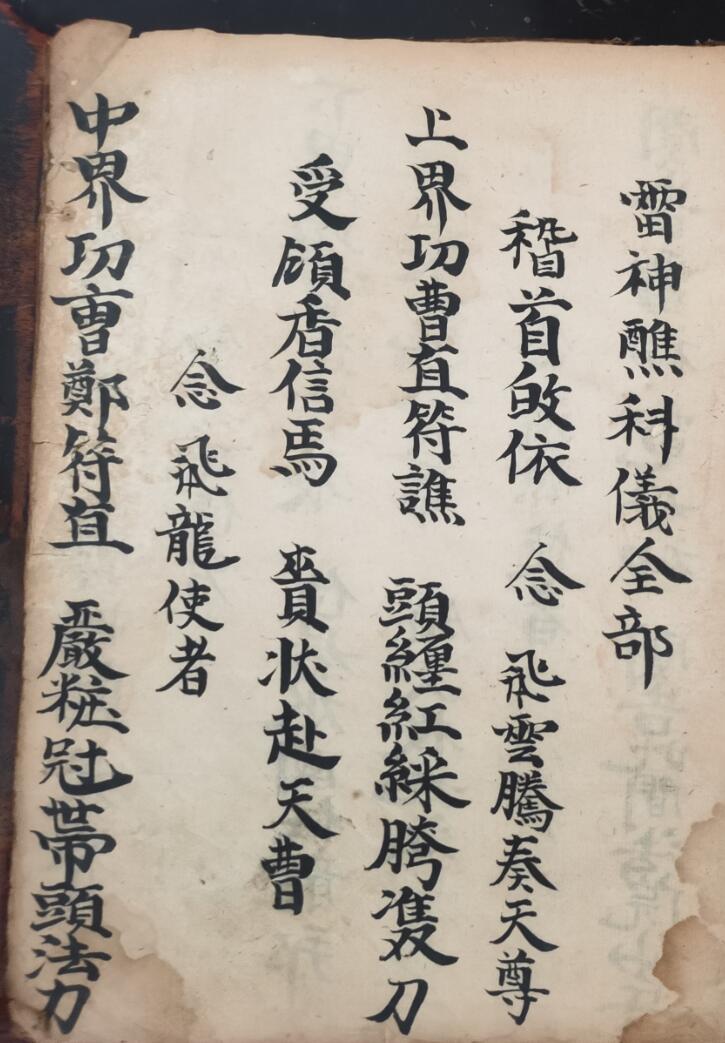 雷神醮科儀全部
稽首皈依 念 飛雲騰奏天尊
上界功曹直符譙 頭纏紅綵胯雙刀
受領香信焉 賫状赴天曹
念 飛龍使者
中界功曹鄭符直 嚴粧冠帶頭法力